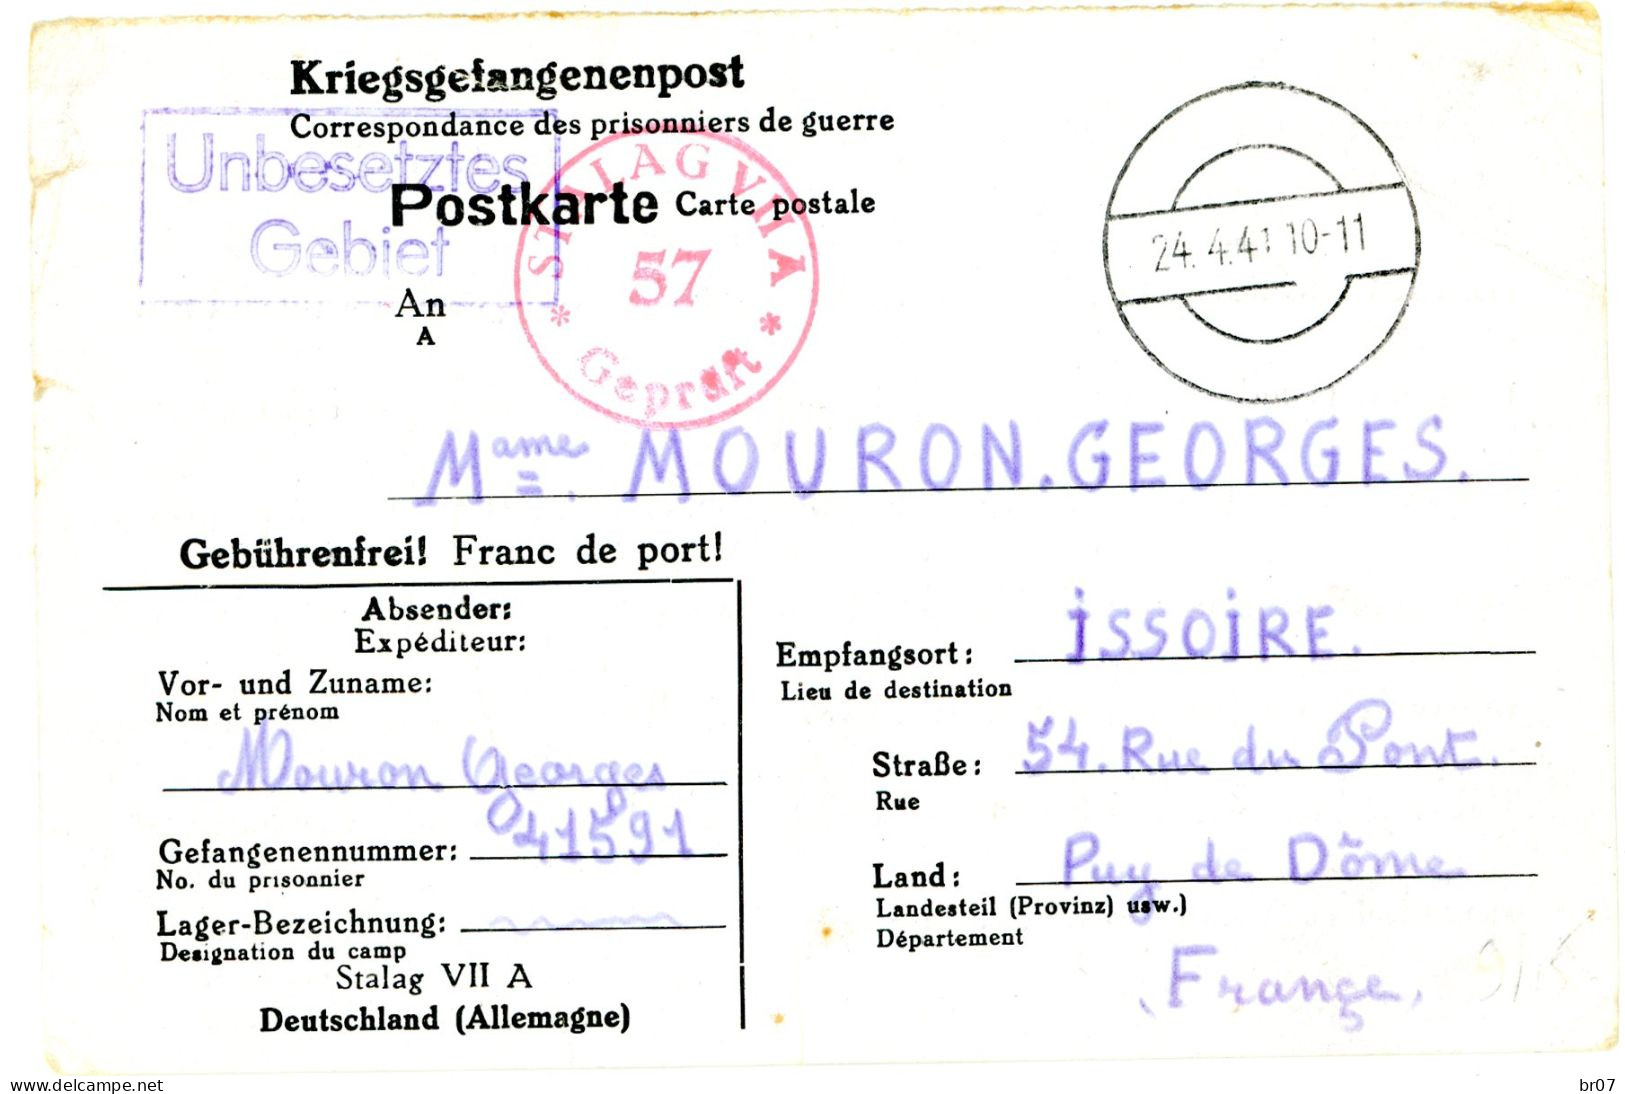 Kriegsgefangenenpost
Correspondance des prisonniers de guerre
Unbesetztes
Gebiet
Postkarte Carte postale
STALAG VII A
57
Geprüft
24.4.41 10-11
An
A
Mame. MOURON.GEORGES.
Gebührenfrei! Franc de port!
Absender:
Expéditeur:
Vor- und Zuname:
Nom et prénom
Mouron Georges
Gefangenennummer: 41591
No. du prisonnier
Lager-Bezeichnung:
Designation du camp
Stalag VII A
Deutschland (Allemagne)
Empfangsort: ISSOIRE.
Lieu de destination
Straße: 54. Rue du Pont.
Rue
Land: Puy de Dôme
Landesteil (Provinz) usw.)
Département
France.
www.delcampe.net
br07